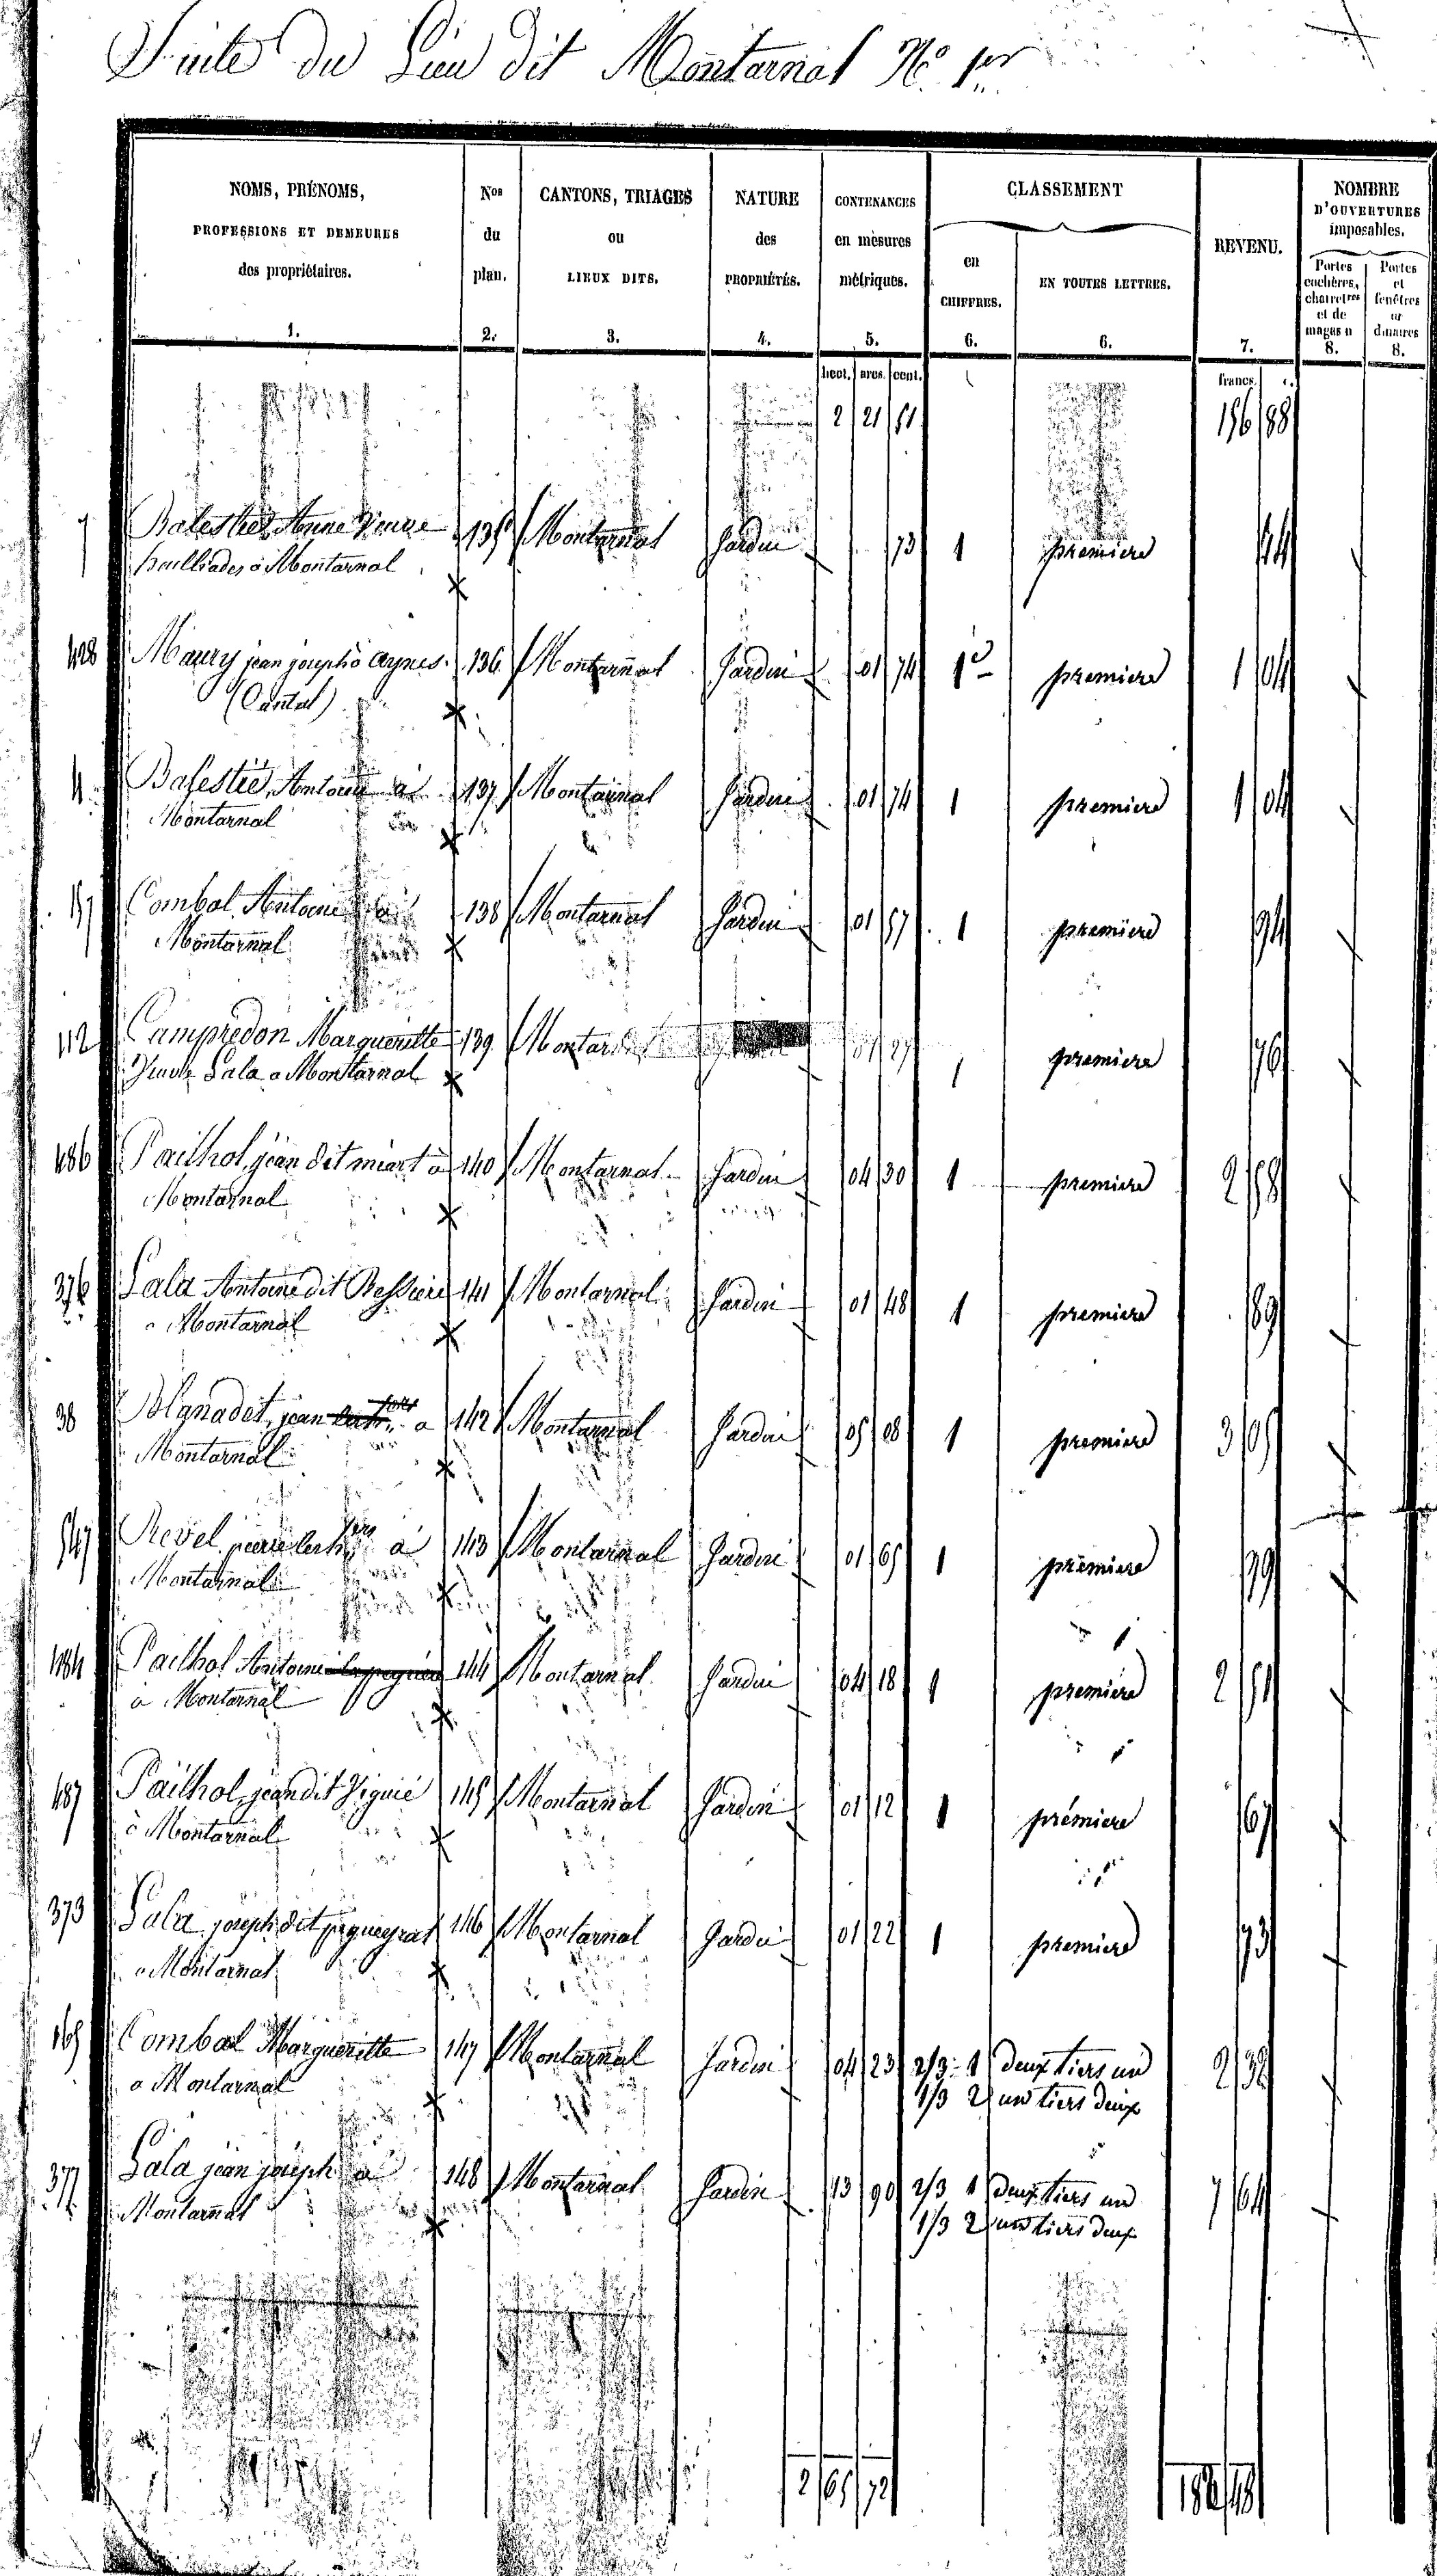 Suite du Lieu dit Montarnal No 1er
NOMS, PRÉNOMS, PROFESSIONS ET DEMEURES des propriétaires. 1.
Nos du plan. 2.
CANTONS, TRIAGES ou LIEUX DITS. 3.
NATURE des PROPRIÉTÉS. 4.
CONTENANCES en mesures métriques. 5.
CLASSEMENT
en CHIFFRES. 6.
EN TOUTES LETTRES. 6.
REVENU. 7.
NOMBRE D'OUVERTURES imposables.
Portes cochères, charretres et de magasin 8.
Portes et fenêtres or dinaires 8.
hect. ares. cent. francs. c.
2 21 51 156 88
7 Balestier Anne Veuve 135 Montarnal Jardin 73 1 premiere 44
à Montarnal
428 Maury jean joseph à aynes 136 Montarnal Jardin 01 74 1e premiere 1 04
(Cantal)
4 Balestié, Antoine à 137 Montarnal Jardin 01 74 1 premiere 1 04
Montarnal
157 Combal Antoine à 138 Montarnal Jardin 01 57 1 premiere 94
Montarnal
112 Campredon Margueritte 139 Montarnal 01 27 1 premiere 76
Veuve Lala a Montarnal
486 Pailhol, jean dit miart à 140 Montarnal Jardin 04 30 1 premiere 2 58
Montarnal
376 Lala Antoine dit Bessiere 141 Montarnal Jardin 01 48 1 premiere 89
a Montarnal
38 Blanadet, jean a 142 Montarnal Jardin 05 08 1 premiere 3 05
Montarnal
547 Revel, pierre à 143 Montarnal Jardin 01 65 1 premiere 99
Montarnal
484 Pailhol Antoine 144 Montarnal Jardin 04 18 1 premiere 2 51
à Montarnal
487 Pailhol, jean dit Viguié 145 Montarnal Jardin 01 12 1 premiere 67
à Montarnal
373 Lala joseph dit 146 Montarnal Jardin 01 22 1 premiere 73
a Montarnal
165 Combal Margueritte 147 Montarnal Jardin 04 23 2/3 1 deux tiers un 2 32
a Montarnal 1/3 2 un tiers deux
377 Lala jean joseph à 148 Montarnal Jardin 13 90 2/3 1 deux tiers un 7 64
Montarnal 1/3 2 un tiers deux
2 65 72 182 48